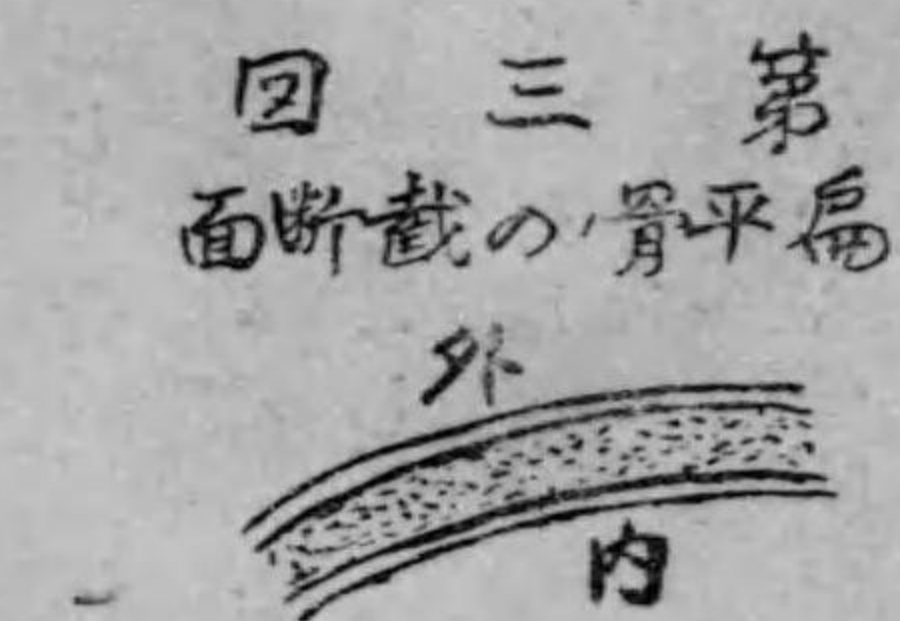 第三図
扁平骨の截断面
外
内